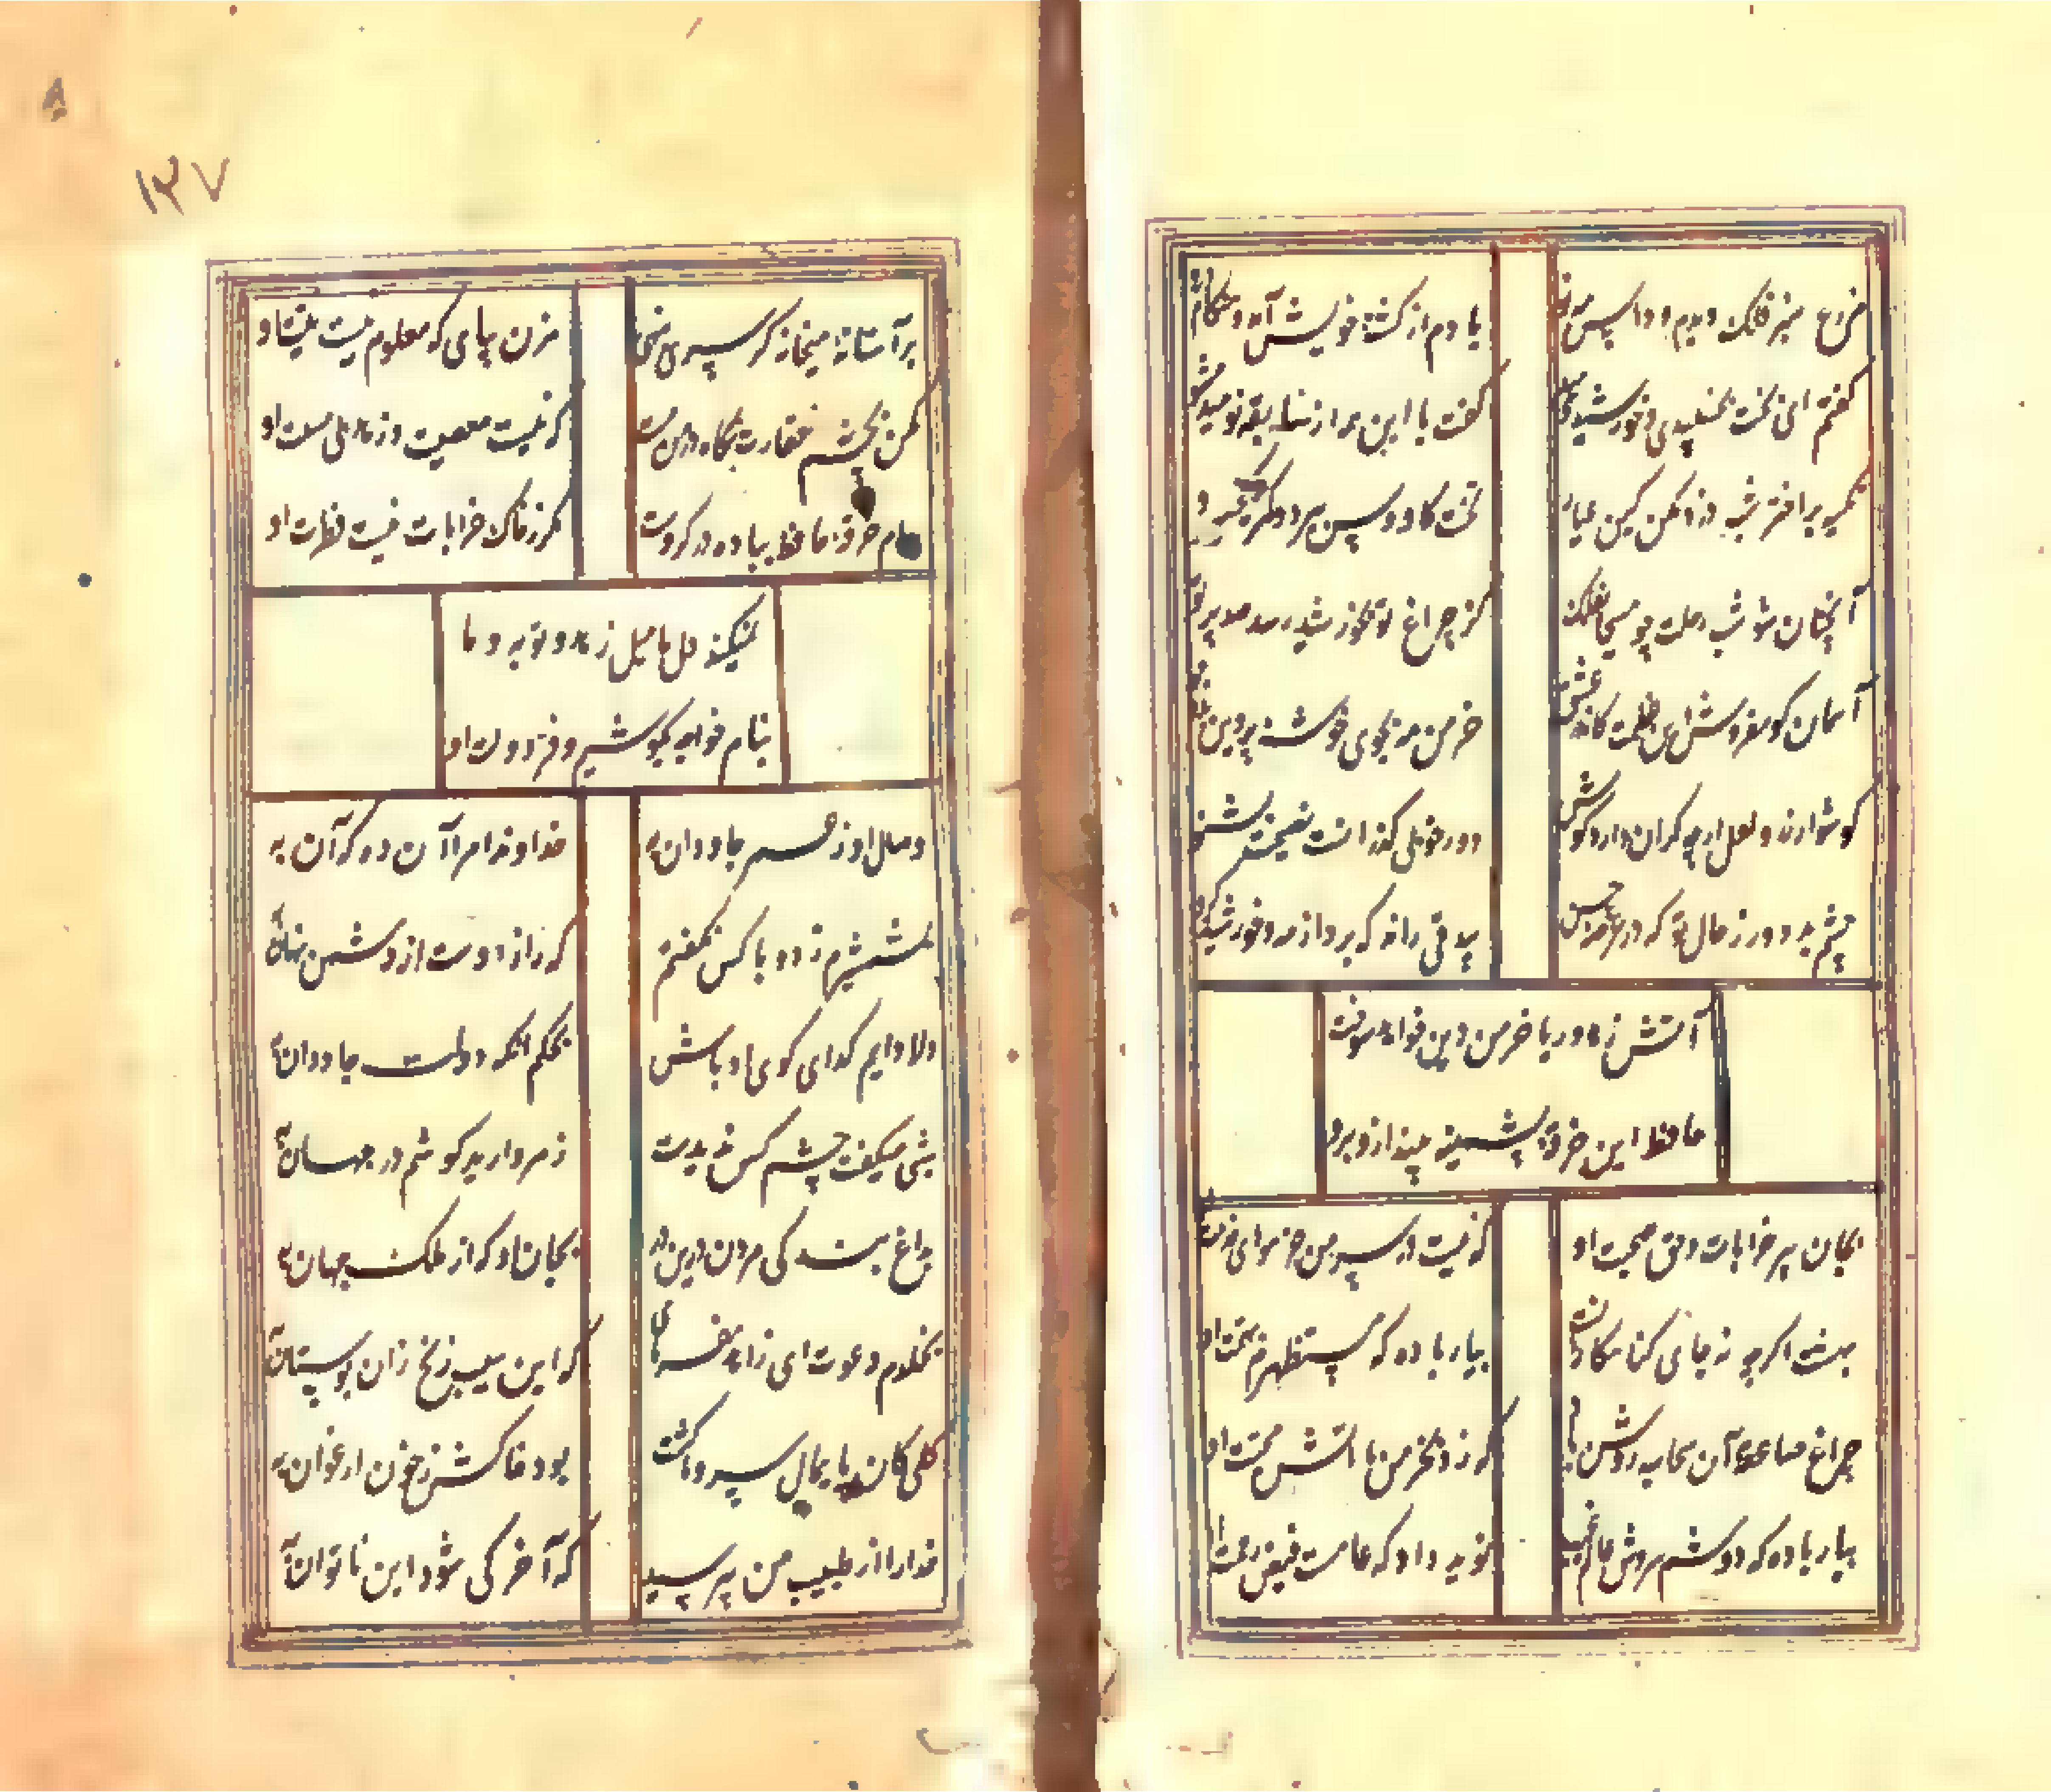 مزرع سبز فلک دیدم و داس مه نو
یادم از کشته خویش آمد و هنگام
گفتم ای بخت بخسپیدی و خورشید دمید
گفت با این همه از سابقه نومید مشو
تکیه بر اختر شب دزد مکن کین عیار
تخت کاوس ببرد و کمر کیخسرو
آنچنان شو شب رحلت چو مسیحا بفلک
کز چراغ تو بخورشید رسد صد پرتو
آسمان کو مفروش این عظمت کاندر عشق
خرمن مه بجوی خوشه پروین
گوشوار در و لعل ارچه گران دارد گوش
دور خوبی گذرانست نصیحت بشنو
چشم بد دور ز خال تو که در عرصه حسن
بیدقی راند که برد از مه و خورشید گرو
آتش زهد و ریا خرمن دین خواهد سوخت
حافظ این خرقه پشمینه بینداز و برو
بجان پیر خرابات و حق صحبت او
که نیست در سر من جز هوای خدمت
بهشت اگرچه نه جای گناهکارانست
بیار باده که مستظهرم بهمت او
چراغ صاعقه آن سحاب روشن باد
که زد بخرمن ما آتش محبت او
بیار باده که دوشم سروش عالم غیب
نوید داد که عامست فیض رحمت او
۱۳۷
بر آستانه میخانه گر سری بینی
مزن بپای که معلوم نیست نیت او
مکن بچشم حقارت نگاه در من مست
که نیست معصیت و زهد بی مشیت او
مدام خرقه حافظ بباده در گروست
مگر ز خاک خرابات نیست فطرت او
نمیکند دل ما میل زهد و توبه و ما
بنام خواجه بکوشیم و فر دولت او
وصال او ز عمر جاودان به
خداوندا مرا آن ده که آن به
بشمشیرم زد و با کس نگفتم
که راز دوست از دشمن نهان به
دلا دایم گدای کوی او باش
بحکم آنکه دولت جاودان به
شبی میگفت چشم کس ندیدست
ز مروارید گوشم در جهان به
بداغ بندگی مردن درین در
بجان او که از ملک جهان به
بخلدم دعوت ای زاهد مفرمای
که این سیب زنخ زان بوستان به
گلی کان پایمال سرو ما گشت
بود خاکش ز خون ارغوان به
خدا را از طبیب من بپرسید
که آخر کی شود این ناتوان به